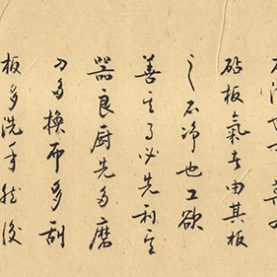 砧板氣者由其板
之不净也工欲
善其事必先利其
器良厨先多磨
刀多換布多刮
板多洗手然後